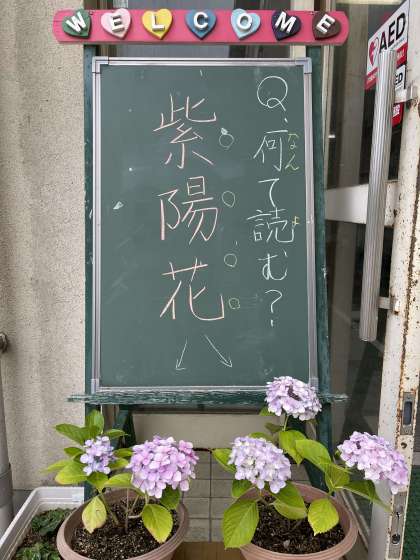 WELCOME
AED
Q.何て読む?
なん
よ
紫陽花